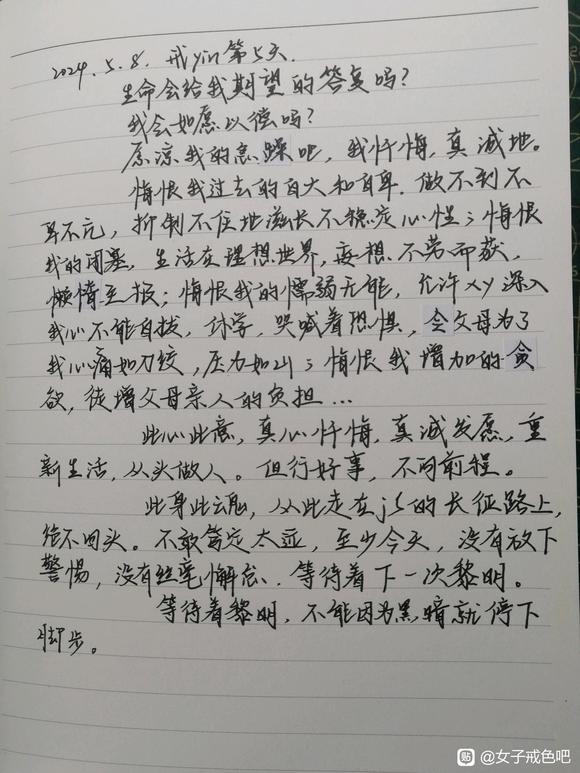 2024.5.8. 戒yin第5天.
生命会给我期望的答复吗?
我会如愿以偿吗?
原凉我的急躁吧，我忏悔，真诚地。
悔恨我过去的自大和自卑．做不到不
卑不亢，抑制不住地滋长不稳定心性；悔恨
我的闭塞，生活在理想世界，妄想不劳而获，
懒惰至报；悔恨我的懦弱无能，允许xy深入
我心不能自拔，讨学，哭喊着恐惧，令父母为了
我心痛如刀绞，压力如山；悔恨我增加的贪
欲，徒增父母亲人的负担...
此心此意，真心忏悔，真诚发愿，重
新生活，从头做人。但行好事，不问前程。
此身此魂，从此走在js的长征路上，
绝不回头。不敢笃定太远，至少今天，没有放下
警惕，没有丝毫懈怠．等待着下一次黎明。
等待着黎明，不能因为黑暗就停下
脚步。
贴 @女子戒色吧